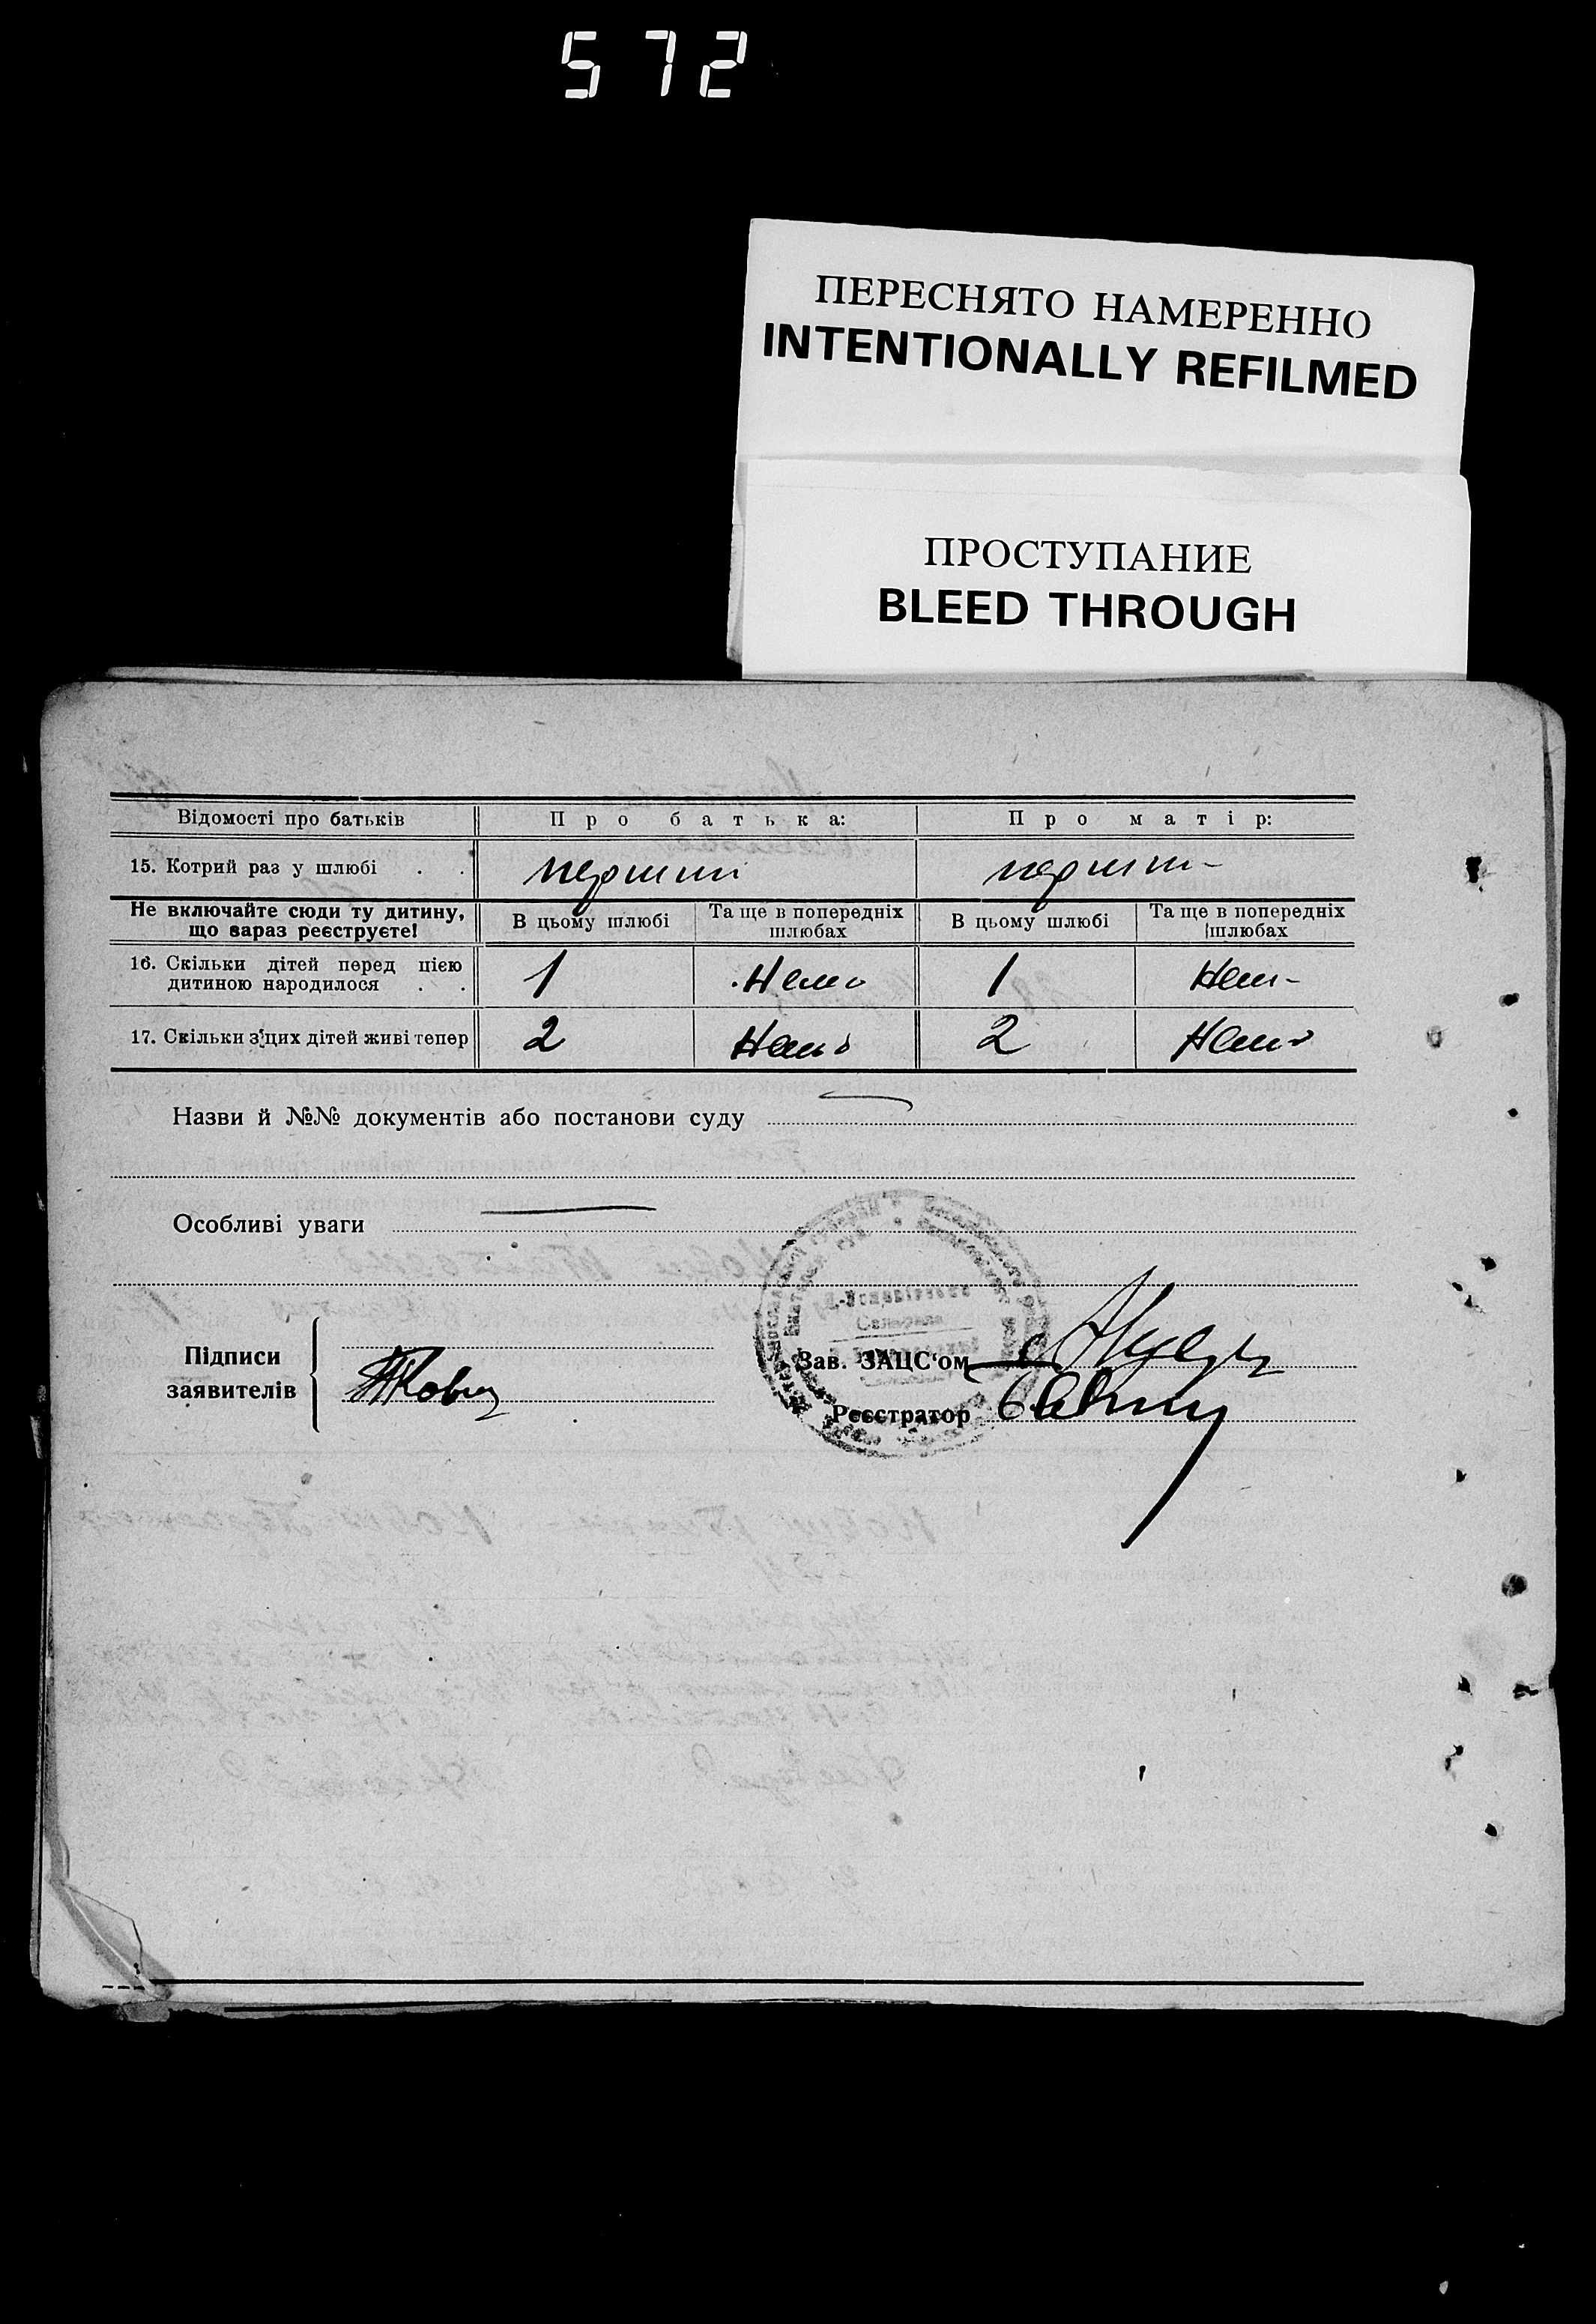 572
ПЕРЕСНЯТО НАМЕРЕННО
INTENTIONALLY REFILMED
ПРОСТУПАНИЕ
BLEED THROUGH
Відомості про батьків Про батька: Про матір:
15. Котрий раз у шлюбі . . перший перши-
Не включайте сюди ту дитину, що зараз реєструєте! В цьому шлюбі Та ще в попередніх шлюбах В цьому шлюбі Та ще в попередніх шлюбах
16. Скільки дітей перед цією дитиною народилося . . 1 Нема 1 Нем-
17. Скільки з цих дітей живі тепер 2 Нема 2 Нема
Назви й №№ документів або постанови суду
Особливі уваги
Підписи заявителів
Зав. ЗАЦС‘ом
Реєстратор